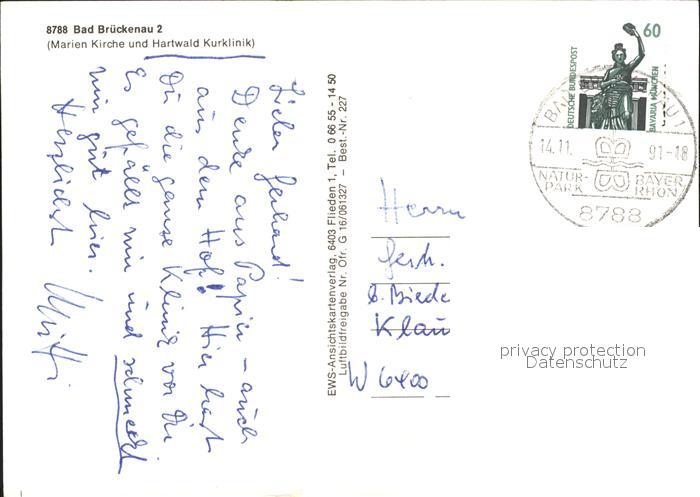 8788 Bad Brückenau 2
(Marien Kirche und Hartwald Kurklinik)
Lieber Gerhard!
Denke ans Papier – auch
aus dem Hof! Hier hast
Du die ganze Klinik vor Dir
Es gefällt mir und schmeckt
mir gut hier.
Herzlichst
EWS-Ansichtskartenverlag, 6403 Flieden 1, Tel. 0 66 55 - 14 50
Luftbildfreigabe Nr. Ofr. G 16/061327 – Best.-Nr. 227
60
DEUTSCHE BUNDESPOST
BAVARIA MÜNCHEN
14.11. 91-18
NATUR-
PARK
BAYER
RHÖN
8788
Herrn
Gerh.
Klau
W 6400
privacy protection
Datenschutz